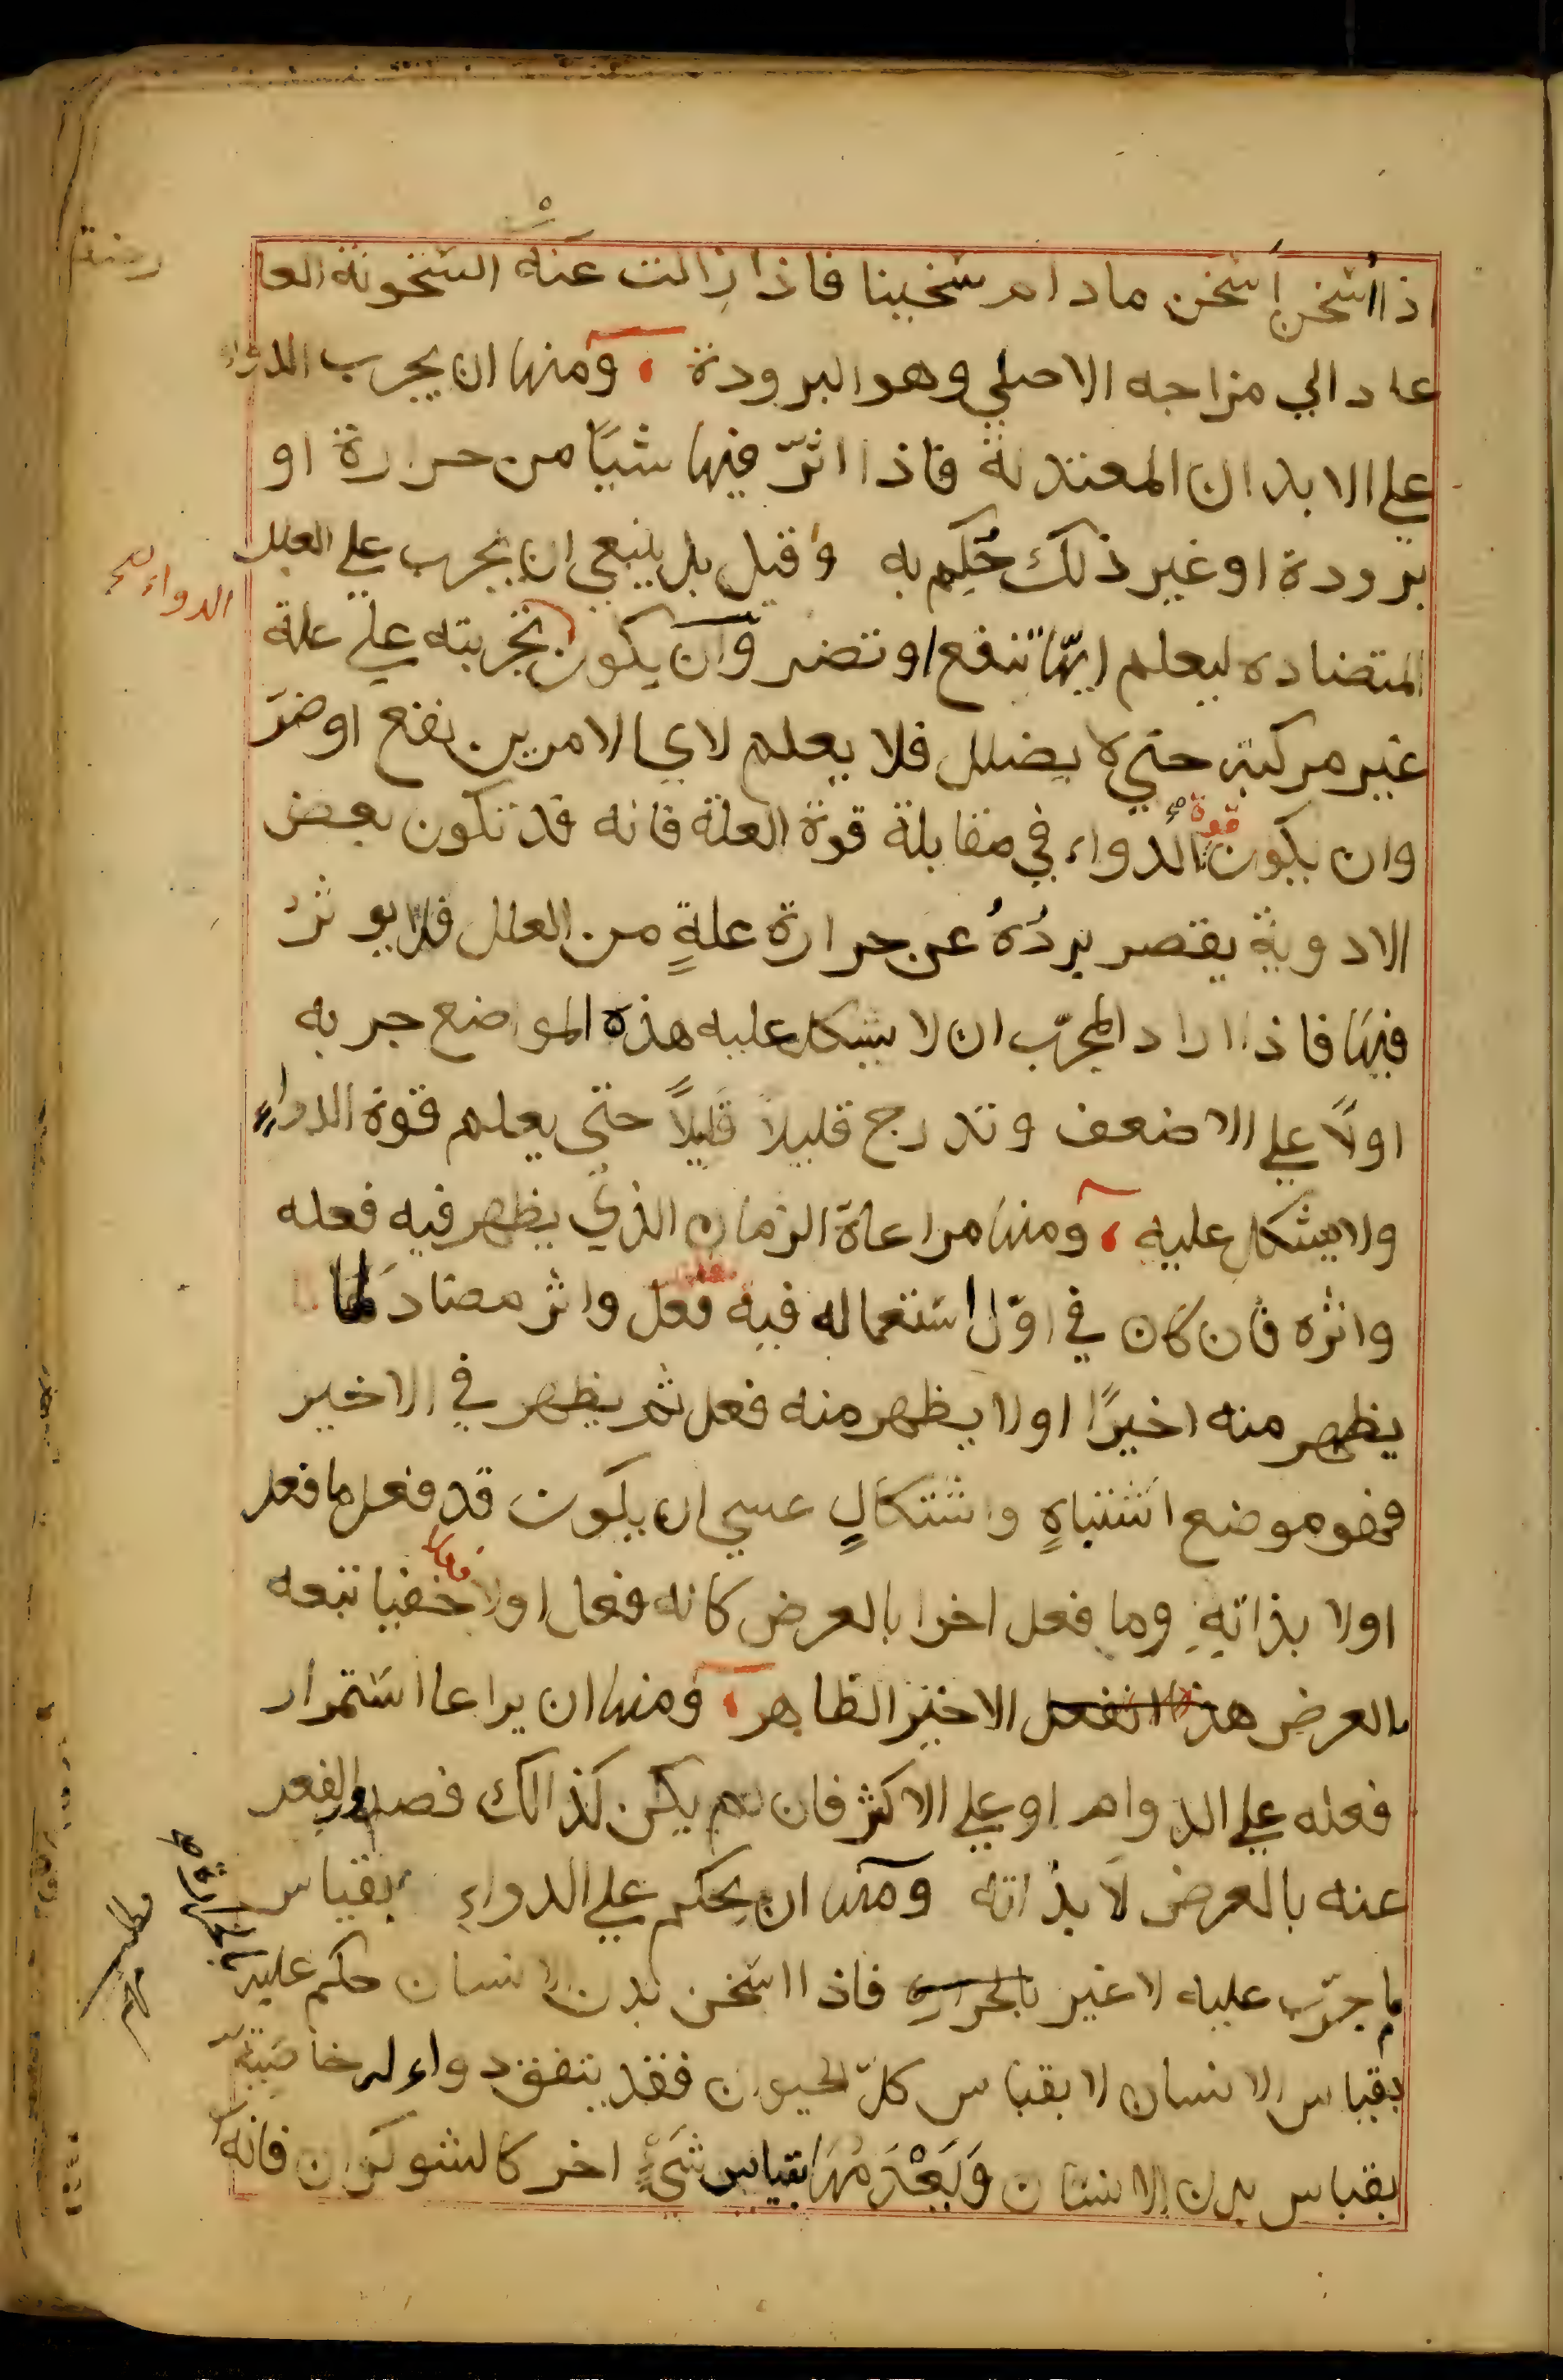 اذا اسخن اسخن مادام سخينا فاذا زالت عنه السخونة العا
رضة
عاد الي مزاجه الاصلي وهو البرودة ، ومنها ان يجرب الدواء
علي الابدان المعتدلة فاذا اثرّ فيها شيًا من حرارة او
برودة او غير ذلك حُكِم به وقيل بل ينبغي ان يجرب علي العلل
الدواء صح
المتضاده ليعلم ايّها تنفع او تضر وان يكون تجربته علي علة
غير مركبة حتي لا يضلل فلا يعلم لاي الامرين نفع او ضرّ
وان يكون قوة الدواء في مقابلة قوة العلة فانه قد تكون بعض
الادوية يقصر بردُهُ عن حرارة علةٍ من العلل فلا يوثرُ
فيها فاذا اراد المجرّب ان لا يشكل عليه هذه المواضع جربه
اولاً علي الاضعف وتدرج قليلاً قليلاً حتى يعلم قوة الدواءِ
ولا يشكل عليه ، ومنها مراعاة الزمان الذي يظهر فيه فعله
واثره فان كان في اوّل استعماله فيه فعل واثر مضاد لما
يظهر منه اخيرًا اولا يظهر منه فعل ثم يظهر في الاخير
فهو موضع اشتباهٍ واشتكالٍ عسي ان يكون قد فعل ما فعل
اولا بذاتهِ وما فعل اخرا بالعرض كانه فعل اولا خفيا تبعه
بالعرض هذا الفعل الاخير الظاهر ، ومنها ان يراعا استمرار
فعله علي الدوام او علي الاكثر فان لم يكن كذالك فصدور الفعل
عنه بالعرض لا بذاته ومنها ان يحكم علي الدواءِ بقياس
ما جرّب عليه لا غير بالحرارة فاذا اسخن بدن الانسان حكم عليه
بقياس الانسان لا بقياس كلّ الحيوان فقد يتفق دواء له خاصية
بقياس بدن الانسان وَيَعْدَمُهَا بقياس شَيْءٍ اخر كالشوكران فانه